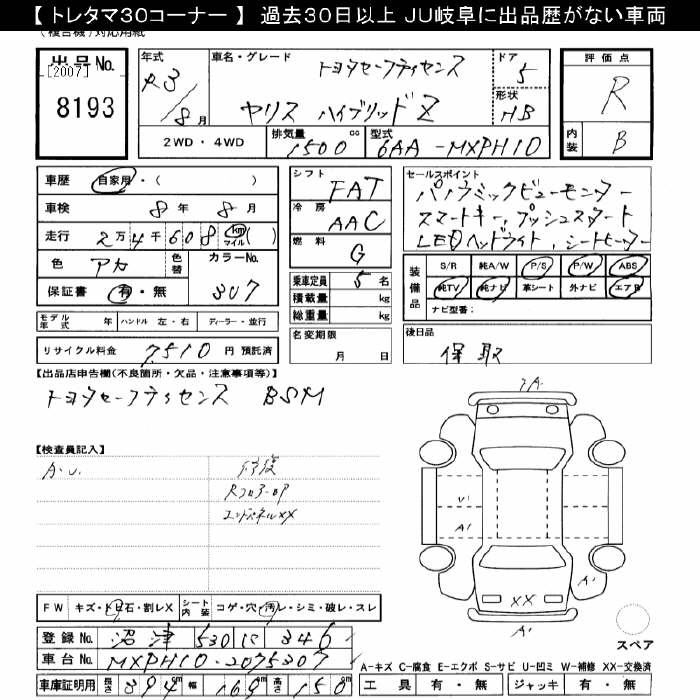 【 トレタマ30コーナー 】 過去30日以上 JU岐阜に出品歴がない車両
出品No.
[2007]
8193
年式 R3/8月
車名・グレード トヨタセーフティセンス
ヤリス ハイブリッドZ
ドア 5
形状 HB
評価点 R
内装 B
2WD・4WD 排気量 1500 cc 型式 6AA-MXPH10
車歴 自家用・( )
車検 8年 8月
走行 2万4千608 km マイル ( )
色 アカ 色替 カラーNo. 3U7
保証書 有・無
モデル年式 年 ハンドル 左・右 ディーラー・並行
リサイクル料金 7510 円 預託済
シフト FAT
冷房 AAC
燃料 G
乗車定員 5名
積載量 kg
総重量 kg
名変期限 月 日
セールスポイント
パノラミックビューモニター
スマートキー, プッシュスタート
LEDヘッドライト, シートヒーター
装備品 S/R 純A/W P/S P/W ABS
純TV 純ナビ 革シート 外ナビ エアB
ナビ型番:
後日品
保 取
【出品店申告欄(不良箇所・欠品・注意事項等)】
トヨタセーフティセンス BSM
【検査員記入】
A.U. 修復
Rフロアー
エンドパネルXX
A'
U'
A'
A'
XX
A'
スペア
FW キズ・トビ石・割レX シート内装 コゲ・穴・汚レ・シミ・破レ・スレ
登録No. 沼津 530 は 346
車台No. MXPH10-2075307
車庫証明用 長さ 394 cm 幅 169 cm 高さ 150 cm
A-キズ C-腐食 E-エクボ S-サビ U-凹ミ W-補修 XX-交換済
工具 有・無 ジャッキ 有・無